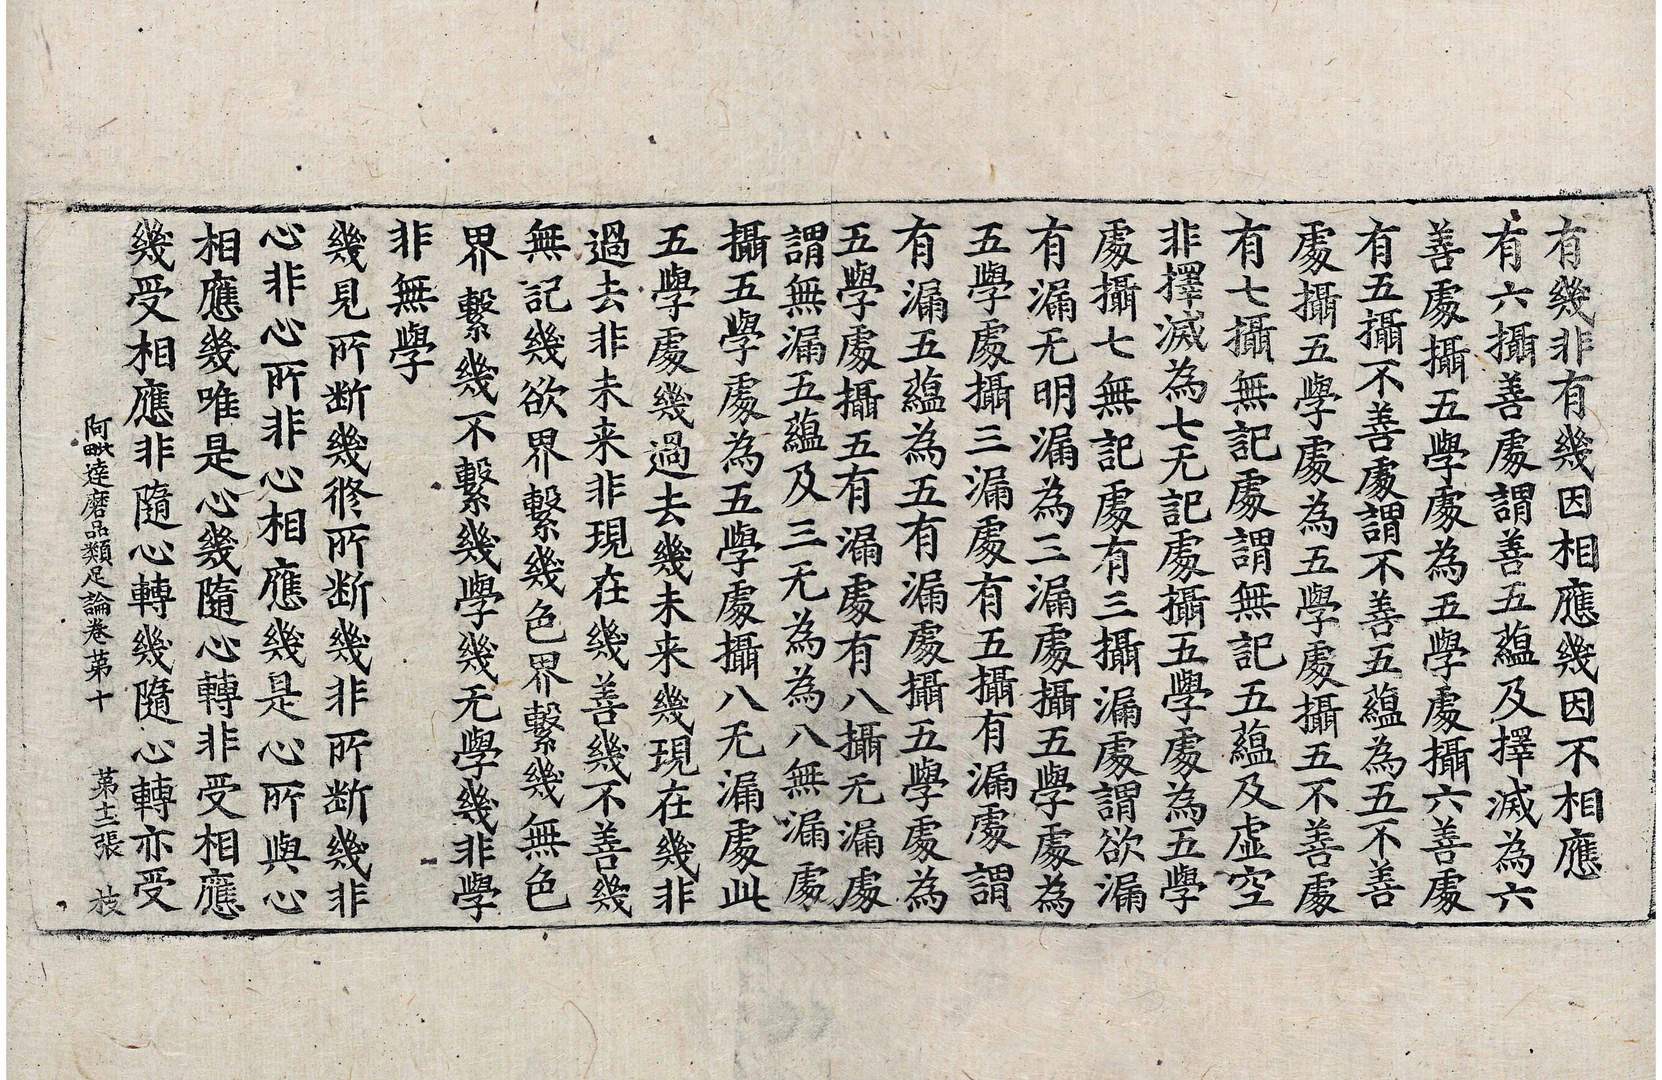 有幾非有幾因相應幾因不相應
有六攝善處謂善五蘊及擇滅為六
善處攝五學處為五學處攝六善處
有五攝不善處謂不善五蘊為五不善
處攝五學處為五學處攝五不善處
有七攝無記處謂無記五蘊及虛空
非擇滅為七无記處攝五學處為五學
處攝七無記處有三攝漏處謂欲漏
有漏无明漏為三漏處攝五學處為
五學處攝三漏處有五攝有漏處謂
有漏五蘊為五有漏處攝五學處為
五學處攝五有漏處有八攝无漏處
謂無漏五蘊及三无為為八無漏處
攝五學處為五學處攝八无漏處此
五學處幾過去幾未来幾現在幾非
過去非未来非現在幾善幾不善幾
無記幾欲界繫幾色界繫幾無色
界繫幾不繫幾學幾无學幾非學
非無學
幾見所断幾修所断幾非所断幾非
心非心所非心相應幾是心所與心
相應幾唯是心幾隨心轉非受相應
幾受相應非隨心轉幾隨心轉亦受
阿毗達磨品類足論卷第十 第十二張 枝